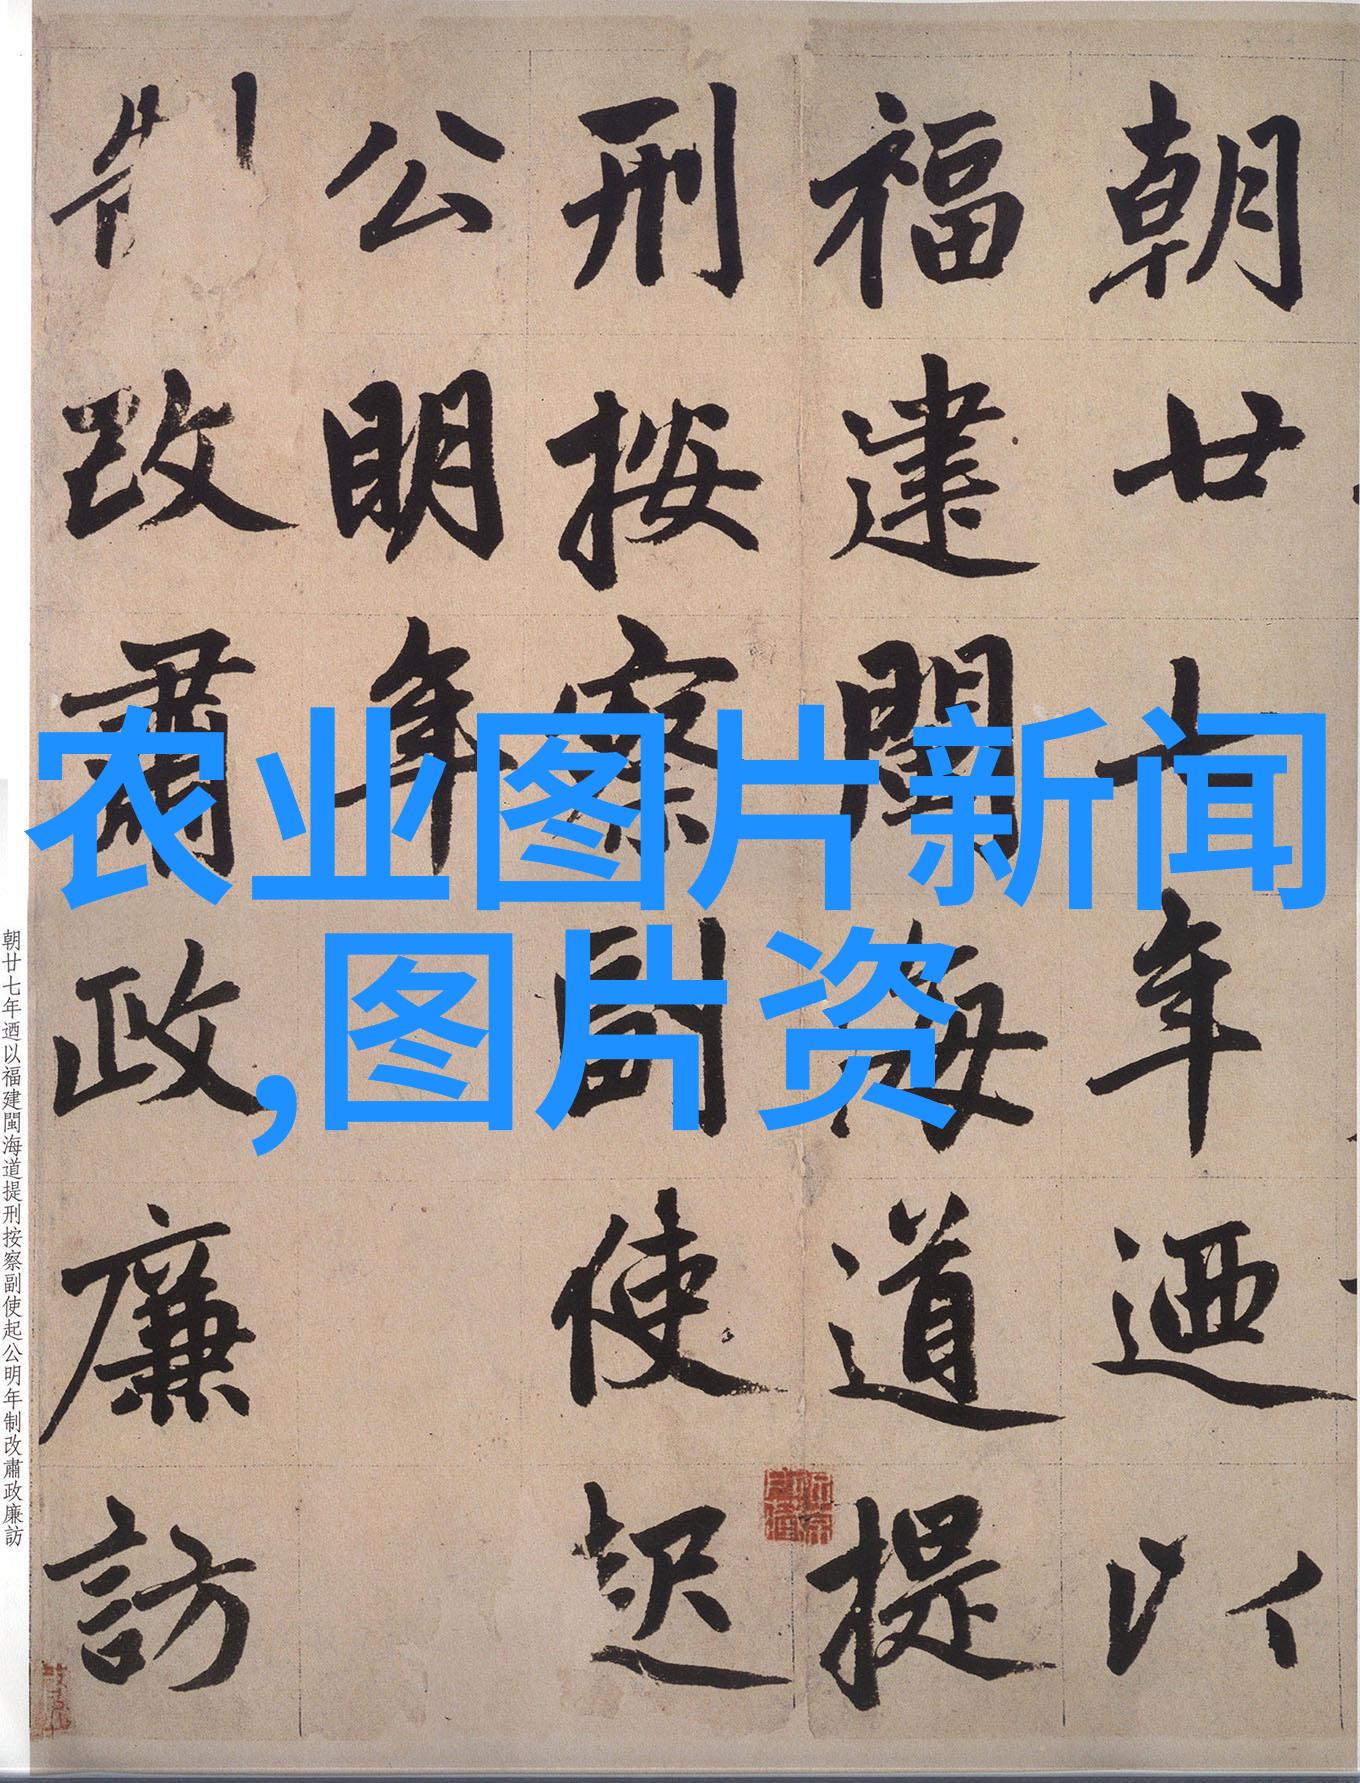 朝廿七年迺以
福建閩海道提
刑按察副使起
公明年
制改肅政廉訪
农业图片新闻
,图片资
朝廿七年迺以福建閩海道提刑按察副使起公明年制改肅政廉訪